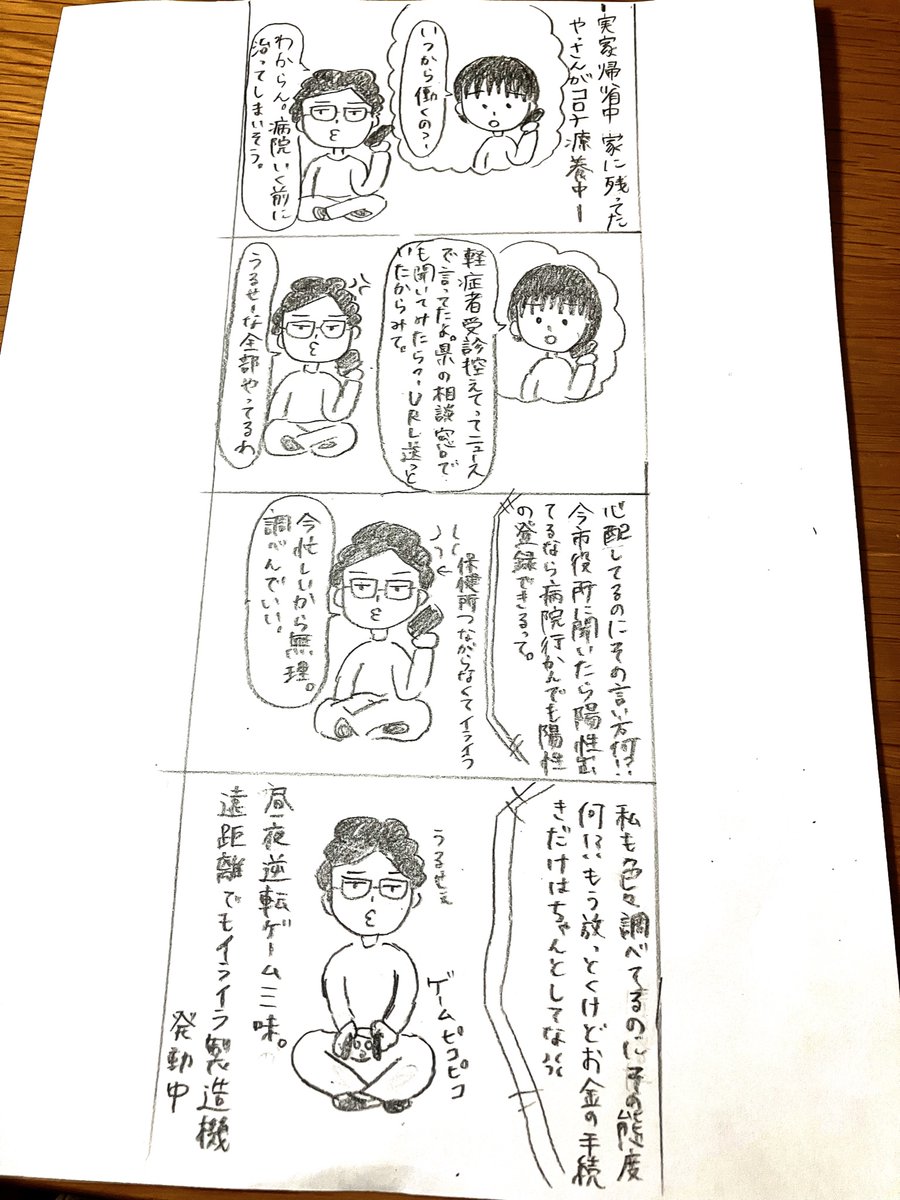 ー実家帰省中 家に残ってた
や.さんがコロナ療養中ー
いつから働くの?
わからん。病院いく前に
治ってしまいそう。
軽症者受診控えてってニュース
で言ってたよ。県の相談窓口で
も聞いてみたら?URL送っと
いたからみて。
うるせーな全部やってるわ
心配してるのにその言い方何!?
今市役所に聞いたら陽性出
てるなら病院行かんでも陽性
の登録できるって。
保健所つながらなくてイライラ
今忙しいから無理。
調べんでいい。
私も色々調べてるのにその態度
何!?もう放っとくけどお金の手続
きだけはちゃんとしてな!!
うるせぇ
ゲームピコピコ
昼夜逆転ゲーム三昧。
遠距離でもイライラ製造機
発動中